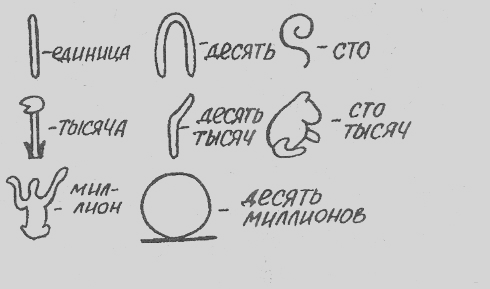 -единица
-десять
-сто
-тысяча
десять
-тысяч
-сто
тысяч
-мил-
лион
-десять
миллионов